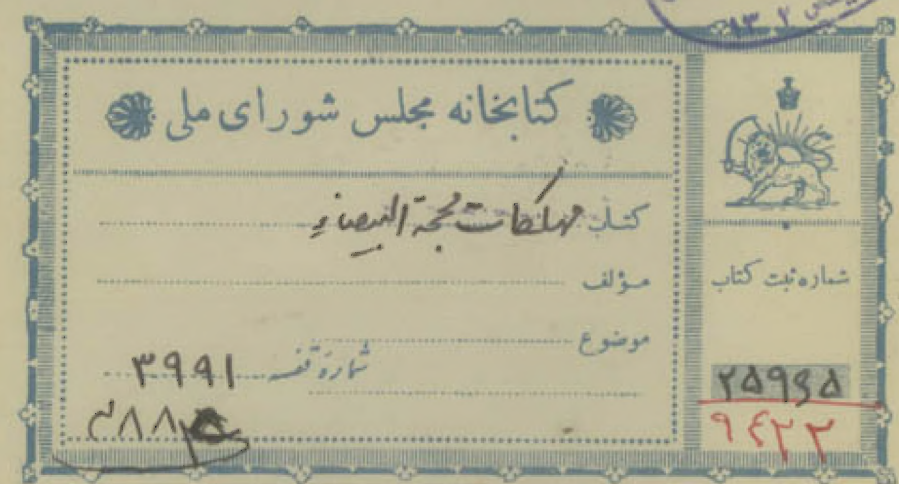 کتابخانه مجلس شورای ملی
کتاب مهلکات محجة البیضاء
مؤلف
موضوع
شماره قفسه ۳۹۹۱
شماره ثبت کتاب
۲۵۹۴۵
۹۴۲۲